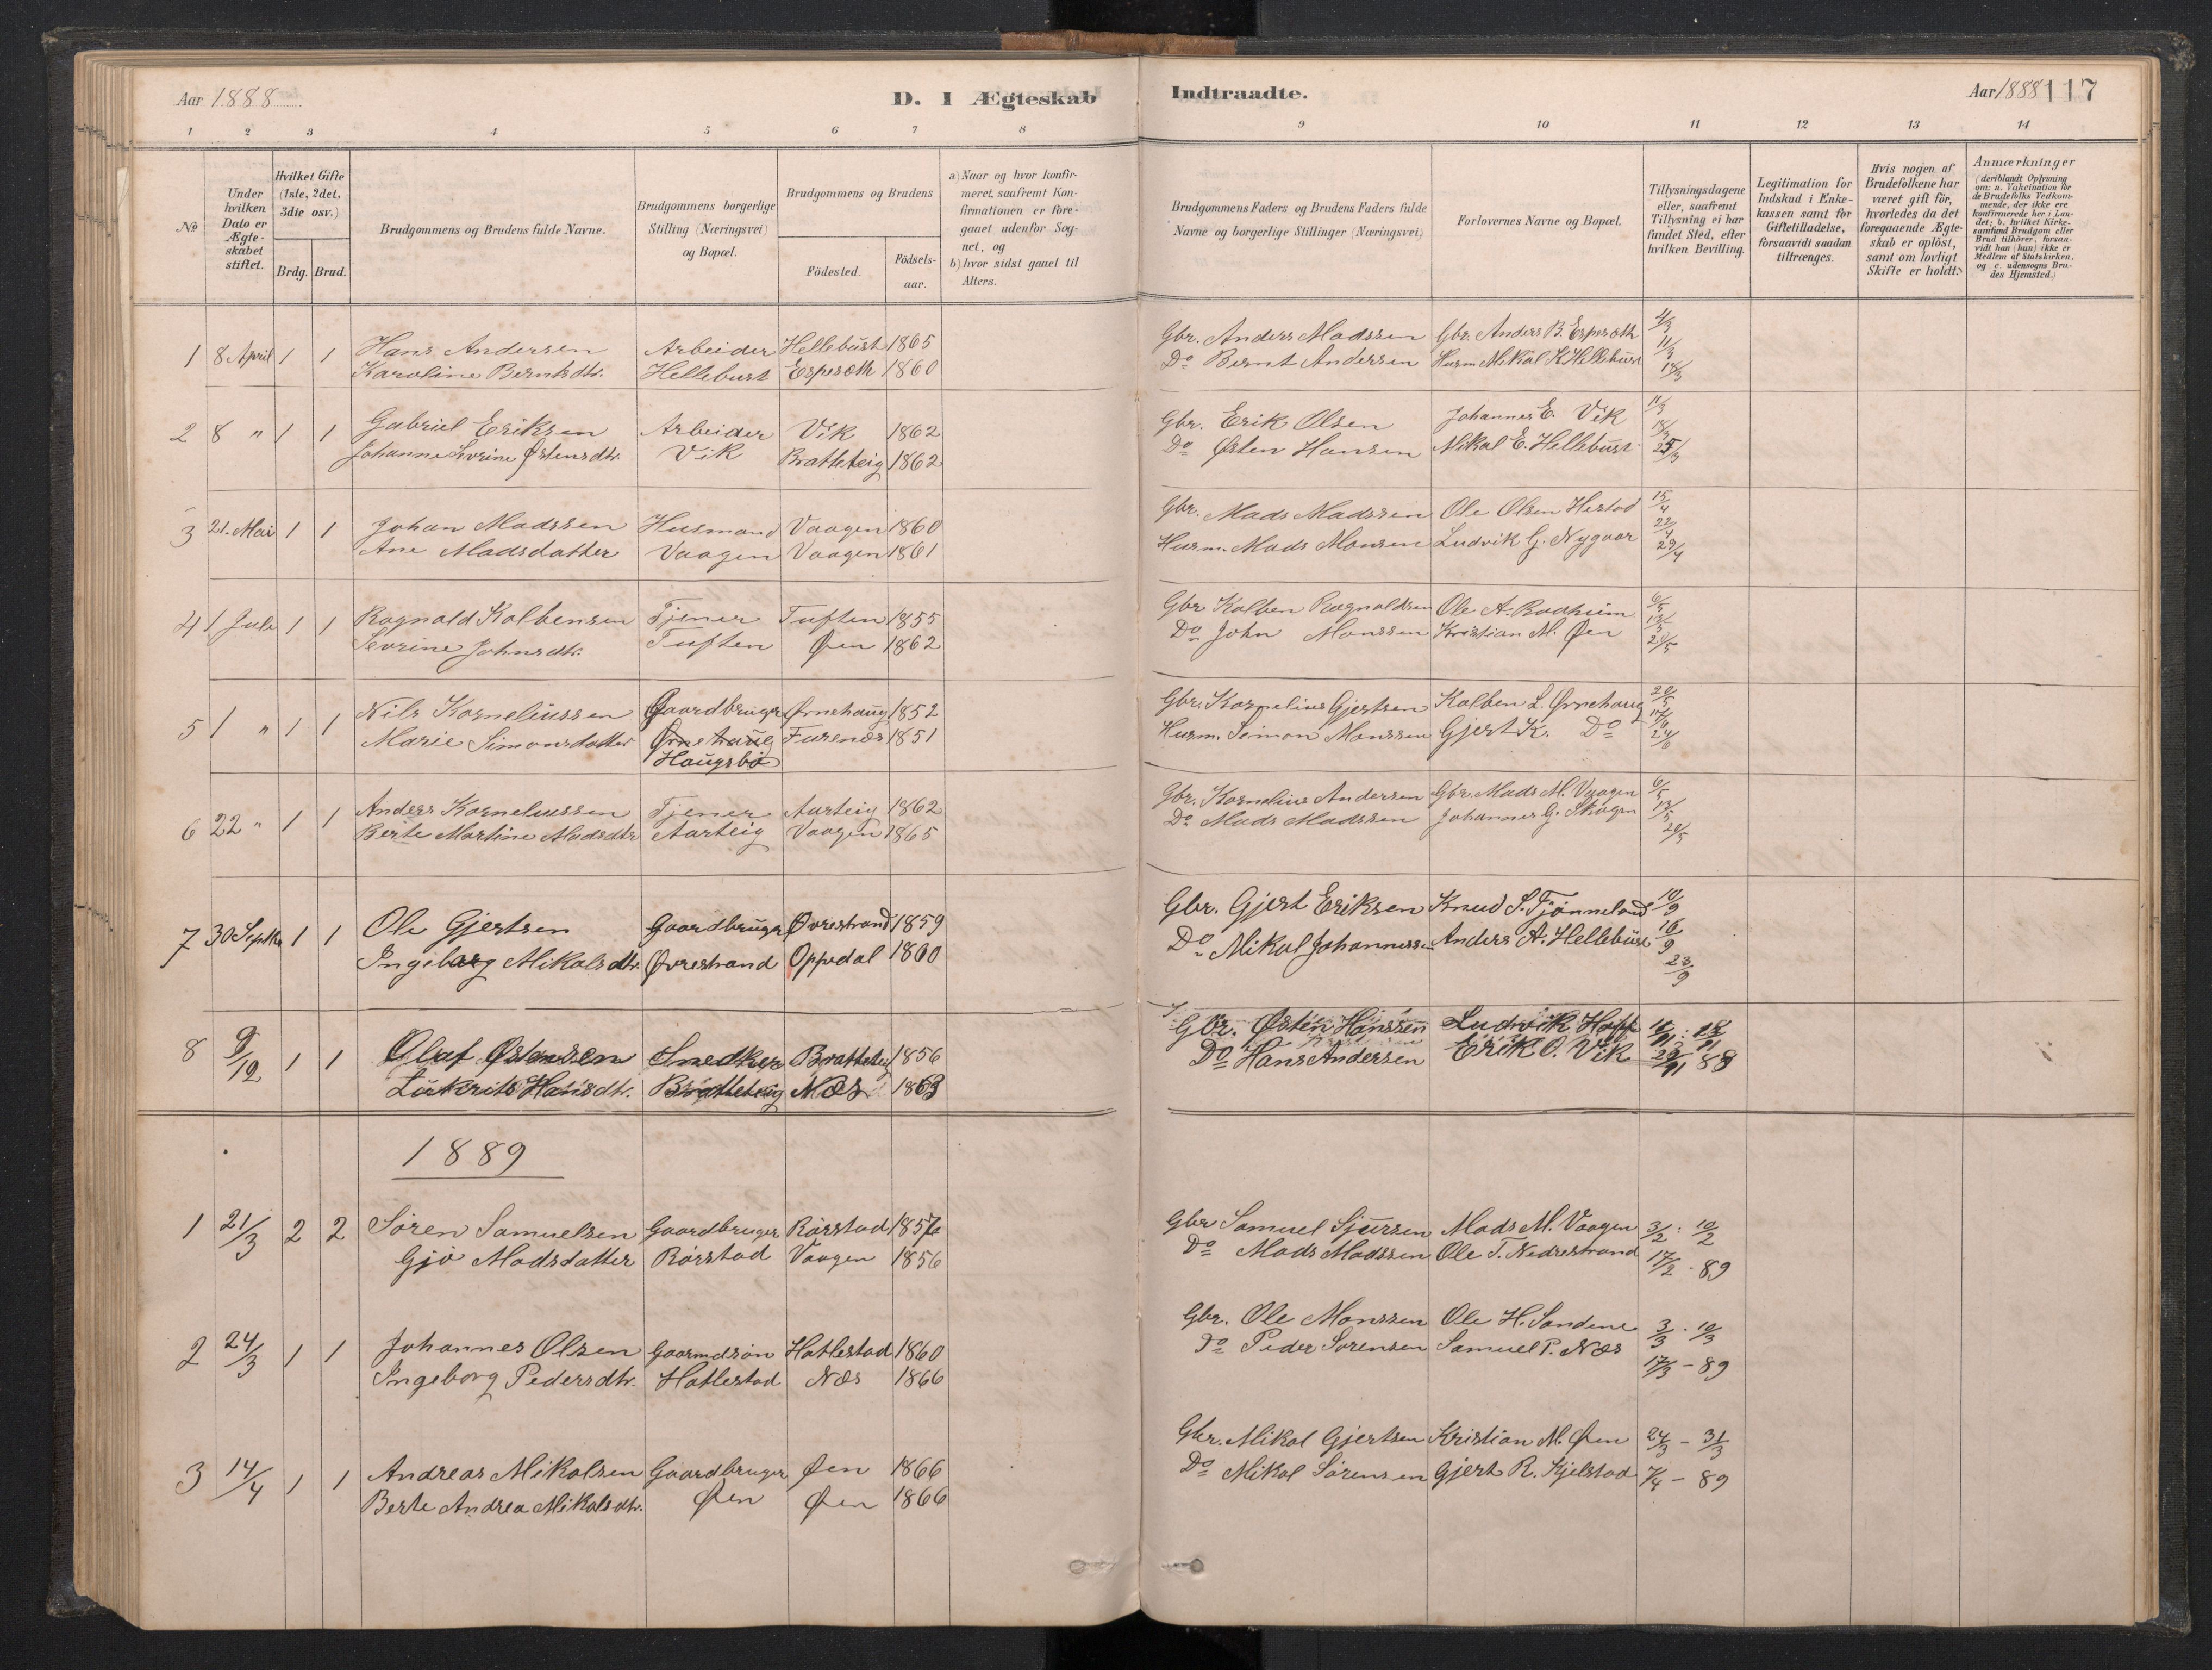 Aar 1888
D. I Ægteskab
Indtraadte.
Aar 1888 117
1 2 3 4 5 6 7 8
9 10 11 12 13 14
No
Under hvilken Dato er Ægte-skabet stiftet.
Hvilket Gifte (1ste, 2det, 3die osv.)
Brdg. Brud.
Brudgommens og Brudens fulde Navne.
Brudgommens borgerlige Stilling (Næringsvei) og Bopæl.
Brudgommens og Brudens
Födested.
Födsels-aar.
a) Naar og hvor konfir-meret, saafremt Kon-firmationen er fore-gaaet udenfor Sog-net, og
b) hvor sidst gaaet til Alters.
Brudgommens Faders og Brudens Faders fulde Navne og borgerlige Stillinger (Næringsvei)
Forlovernes Navne og Bopæl.
Tillysningsdagene eller, saafremt Tillysning ei har fundet Sted, efter hvilken Bevilling.
Legitimation for Indskud i Enke-kassen samt for Giftetilladelse, forsaavidt saadan tiltrænges.
Hvis nogen af Brudefolkene har været gift för, hvorledes da det foregaaende Ægte-skab er oplöst, samt om lovligt Skifte er holdt.
Anmærkninger (deriblandt Oplysning om: a. Vakcination for de Brudefolks Vedkom-mende, der ikke ere konfirmerede her i Lan-det; b. hvilket Kirke-samfund Brudgom eller Brud tilhörer, forsaa-vidt han (hun) ikke er Medlem af Statskirken, og c. udensogns Bru-des Hjemsted.)
1 8 April 1 1 Hans Andersen Arbeider Hellebust 1865 Gbr. Anders Madssen Gbr. Anders B. Espesæth 4/3 11/3
Karoline Berntsdtr. Hellebust Espesæth 1860 Do Bernt Andersen Husm. Mikal K. Hellebust 18/3
2 8 " 1 1 Gabriel Eriksen Arbeider Vik 1862 Gbr. Erik Olsen Johannes E. Vik 11/3 18/3
Johanne Sevrine Østensdtr. Vik Bratteteig 1862 Do Østen Hansen Mikal E. Hellebust 25/3
3 21. Mai 1 1 Johan Madssen Husmand Vaagen 1860 Gbr. Mads Madssen Ole Olsen Hestad 15/4 22/4
Ane Madsdatter Vaagen Vaagen 1861 Husm. Mads Monsen Ludvik G. Nygaar 29/4
4 1 Juli 1 1 Ragnald Kolbensen Tjener Tuften 1855 Gbr Kolben Ragnaldsen Ole A. Badheim 6/5 13/5
Sevrine Johnsdtr. Tuften Øen 1862 Do John Monssen Kristian M. Øen 20/5
5 1 " 1 1 Nils Korneliussen Gaardbruger Ørnehaug 1852 Gbr. Kornelius Gjertsen Kolben L. Ørnehaug 20/5 17/6
Marie Simonsdatter Ørnehaug Furenæs 1851 Husm. Simon Monssen Gjert K. Do 24/6
Haugsbø
6 22 " 1 1 Anders Korneliussen Tjener Aarteig 1862 Gbr. Kornelius Andersen Gbr. Mads M. Vaagen 6/5 13/5
Berte Martine Madsdtr Aarteig Vaagen 1865 Do Mads Madssen Johannes G. Skogen 20/5
7 30 Septbr 1 1 Ole Gjertsen Gaardbruger Øvrestrand 1859 Gbr. Gjert Eriksen Knud S. Tjønneland 10/9 16/9
Ingeborg Mikalsdtr. Øvrestrand Oppedal 1860 Do Mikal Johannessen Anders A. Hellebust 23/9
8 9/12 1 1 Olaf Østensen Snedker Bratteteig 1856 Gbr. Østen Hanssen Ludvik Hoff 18/11
Hansdtr. Bratteteig Næs 1863 Do Hans Andersen Erik O. Vik 88
1889
1 21/3 2 2 Søren Samuelsen Gaardbruger Rørstad 1856 Gbr Samuel Sjursen Mads M. Vaagen 3/2. 10/2
Gjø Madsdatter Rørstad Vaagen 1856 Do Mads Madssen Ole T. Nedrestrand 17/2 - 89
2 24/3 1 1 Johannes Olsen Gaarmdsøn Hatlestad 1860 Gbr. Ole Monssen Ole H. Sandene 3/3. 10/3
Ingeborg Pedersdtr. Hatlestad Næs 1866 Do Peder Sørensen Samuel P. Næs 17/3 - 89
3 14/4 1 1 Andreas Mikalsen Gaardbruger Øen 1866 Gbr. Mikal Gjertsen Kristian M. Øen 24/3 - 31/3
Berte Andrea Mikalsdtr. Øen Øen 1866 Do Mikal Sørensen Gjert R. Kjelstad 7/4 - 89